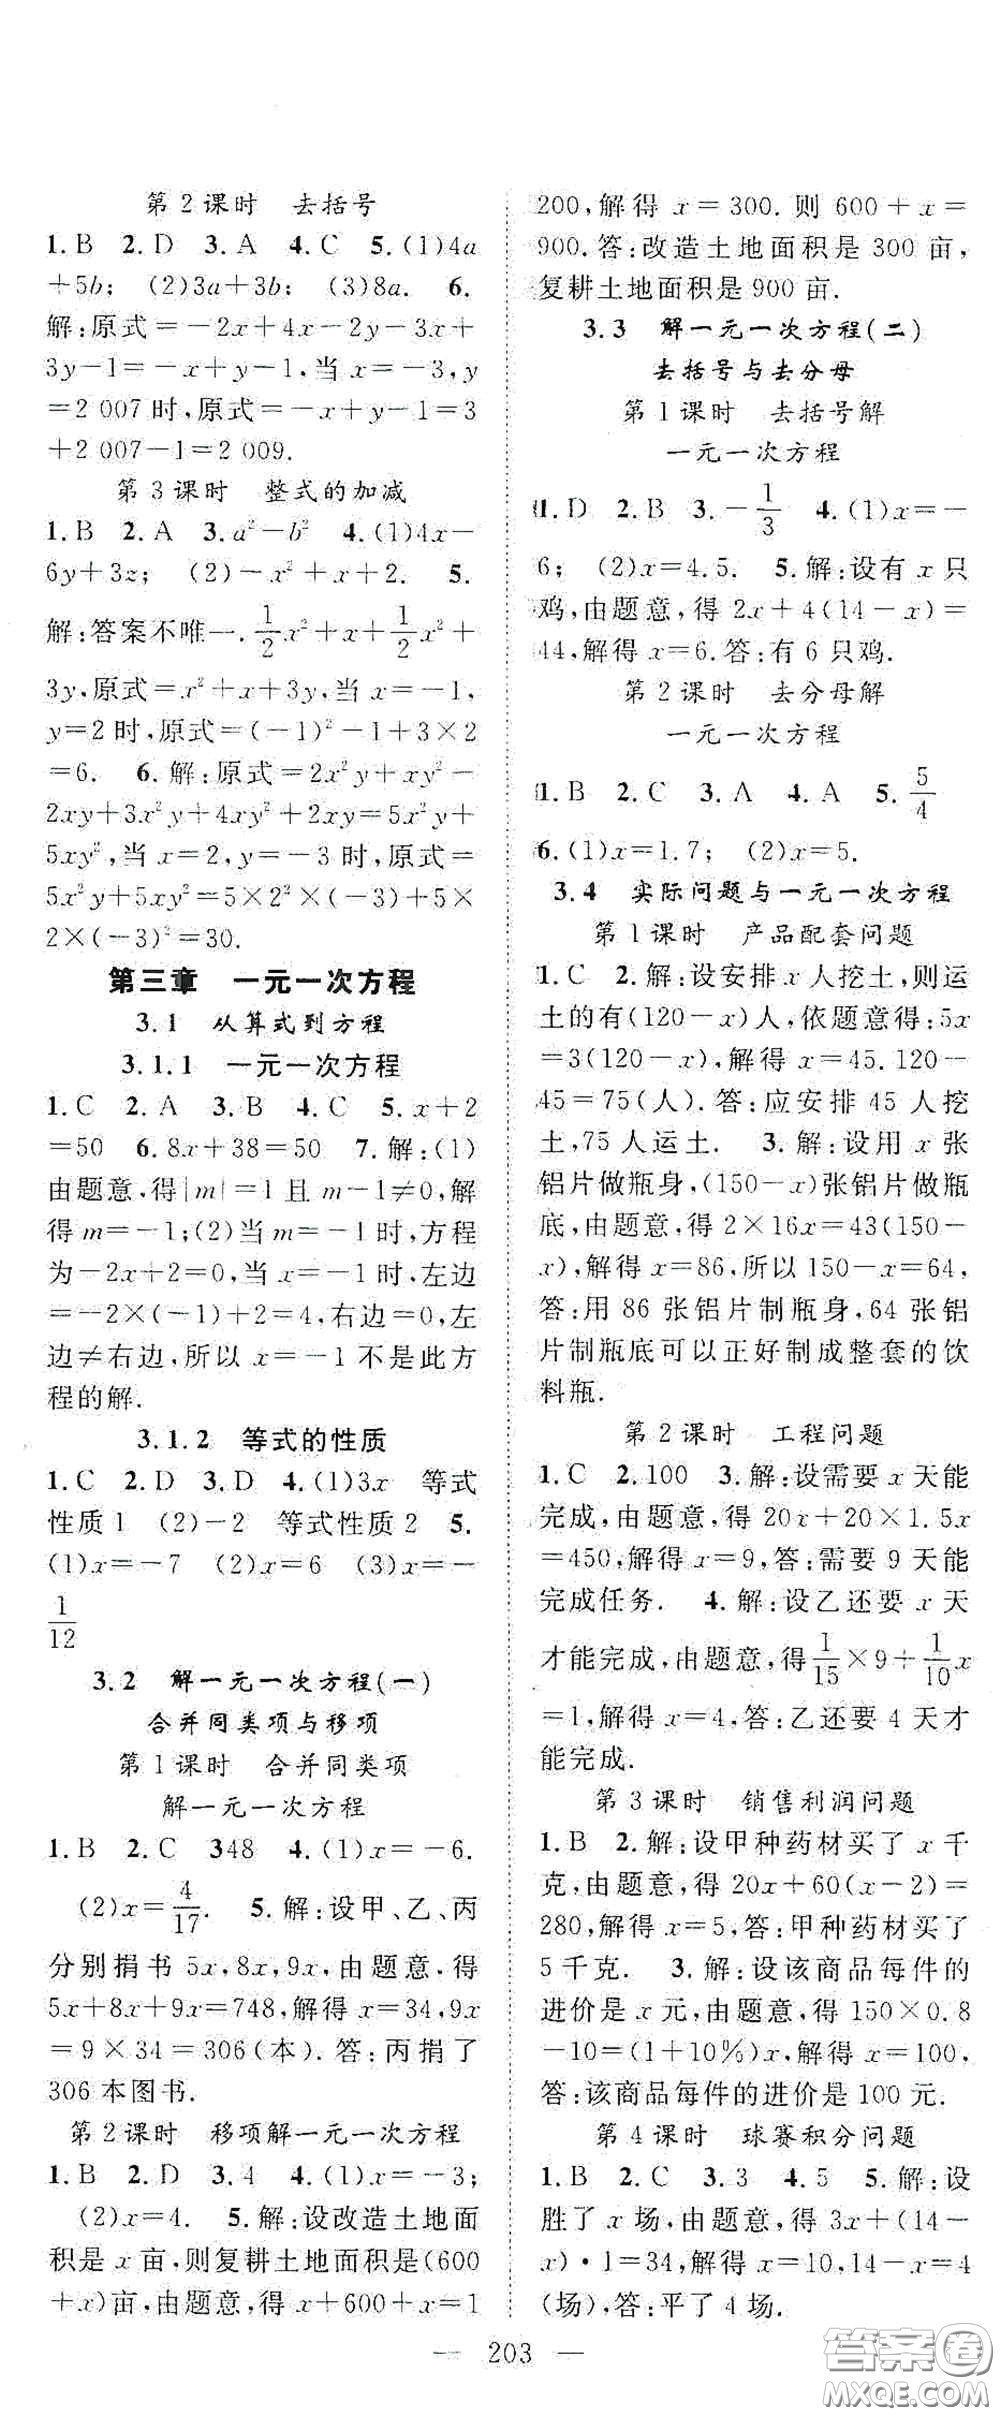 第2课时　去括号
1.B　2.D　3.A　4.C　5.(1)4a
+5b;　(2)3a+3b;　(3)8a.　6.
解:原式=-2x+4x-2y-3x+
3y-1=-x+y-1,当x=-3,y
=2 007时,原式=-x+y-1=3
+2 007-1=2 009.
第3课时　整式的加减
1.B　2.A　3.a²-b²　4.(1)4x-
6y+3z;　(2)-x²+x+2.　5.
解:答案不唯一.1/2x²+x+1/2x²+
3y,原式=x²+x+3y,当x=-1,
y=2时,原式=(-1)²-1+3×2
=6.　6.解:原式=2x²y+xy²-
2xy+3x²y+4xy²+2xy=5x²y+
5xy²,当x=2,y=-3时,原式=
5x²y+5xy²=5×2²×(-3)+5×
2×(-3)²=30.
第三章　一元一次方程
3.1　从算式到方程
3.1.1　一元一次方程
1.C　2.A　3.B　4.C　5.x+2
=50　6.8x+38=50　7.解:(1)
由题意,得|m|=1且m-1≠0,解
得m=-1;(2)当m=-1时,方程
为-2x+2=0,当x=-1时,左边
=-2×(-1)+2=4,右边=0,左
边≠右边,所以x=-1不是此方
程的解.
3.1.2　等式的性质
1.C　2.D　3.D　4.(1)3x　等式
性质1　(2)-2　等式性质2　5.
(1)x=-7　(2)x=6　(3)x=-
1/12
3.2　解一元一次方程(一)
合并同类项与移项
第1课时　合并同类项
解一元一次方程
1.B　2.C　348　4.(1)x=-6.
(2)x=4/17.　5.解:设甲、乙、丙
分别捐书5x,8x,9x,由题意,得
5x+8x+9x=748,解得x=34,9x
=9×34=306(本).答:丙捐了
306本图书.
第2课时　移项解一元一次方程
1.B　2.D　3.4　4.(1)x=-3;
(2)x=4.　5.解:设改造土地面
积是x亩,则复耕土地面积是(600
+x)亩,由题意,得x+600+x=1
200,解得x=300.则600+x=
900.答:改造土地面积是300亩,
复耕土地面积是900亩.
3.3　解一元一次方程(二)
去括号与去分母
第1课时　去括号解
一元一次方程
1.D　2.B　3.-1/3　4.(1)x=-
6;　(2)x=4.5.　5.解:设有x只
鸡,由题意,得2x+4(14-x)=
44,解得x=6.答:有6只鸡.
第2课时　去分母解
一元一次方程
1.B　2.C　3.A　4.A　5.5/4
6.(1)x=1.7;　(2)x=5.
3.4　实际问题与一元一次方程
第1课时　产品配套问题
1.C　2.解:设安排x人挖土,则运
土的有(120-x)人,依题意得:5x
=3(120-x),解得x=45.120-
45=75(人).答:应安排45人挖
土,75人运土.　3.解:设用x张
铝片做瓶身,(150-x)张铝片做瓶
底,由题意,得2×16x=43(150-
x),解得x=86,所以150-x=64,
答:用86张铝片制瓶身,64张铝
片制瓶底可以正好制成整套的饮
料瓶.
第2课时　工程问题
1.C　2.100　3.解:设需要x天能
完成,由题意,得20x+20×1.5x
=450,解得x=9,答:需要9天能
完成任务.　4.解:设乙还要x天
才能完成,由题意,得1/15×9+1/10x
=1,解得x=4,答:乙还要4天才
能完成.
第3课时　销售利润问题
1.B　2.解:设甲种药材买了x千
克,由题意,得20x+60(x-2)=
280,解得x=5,答:甲种药材买了
5千克.　3.解:设该商品每件的
进价是x元,由题意,得150×0.8
-10=(1+10%)x,解得x=100,
答:该商品每件的进价是100元.
第4课时　球赛积分问题
1.B　2.C　3.3　4.5　5.解:设
胜了x场,由题意,得3x+(14-
x)·1=34,解得x=10,14-x=4
(场),答:平了4场.
— 203 —
答案圈
MXQE.COM